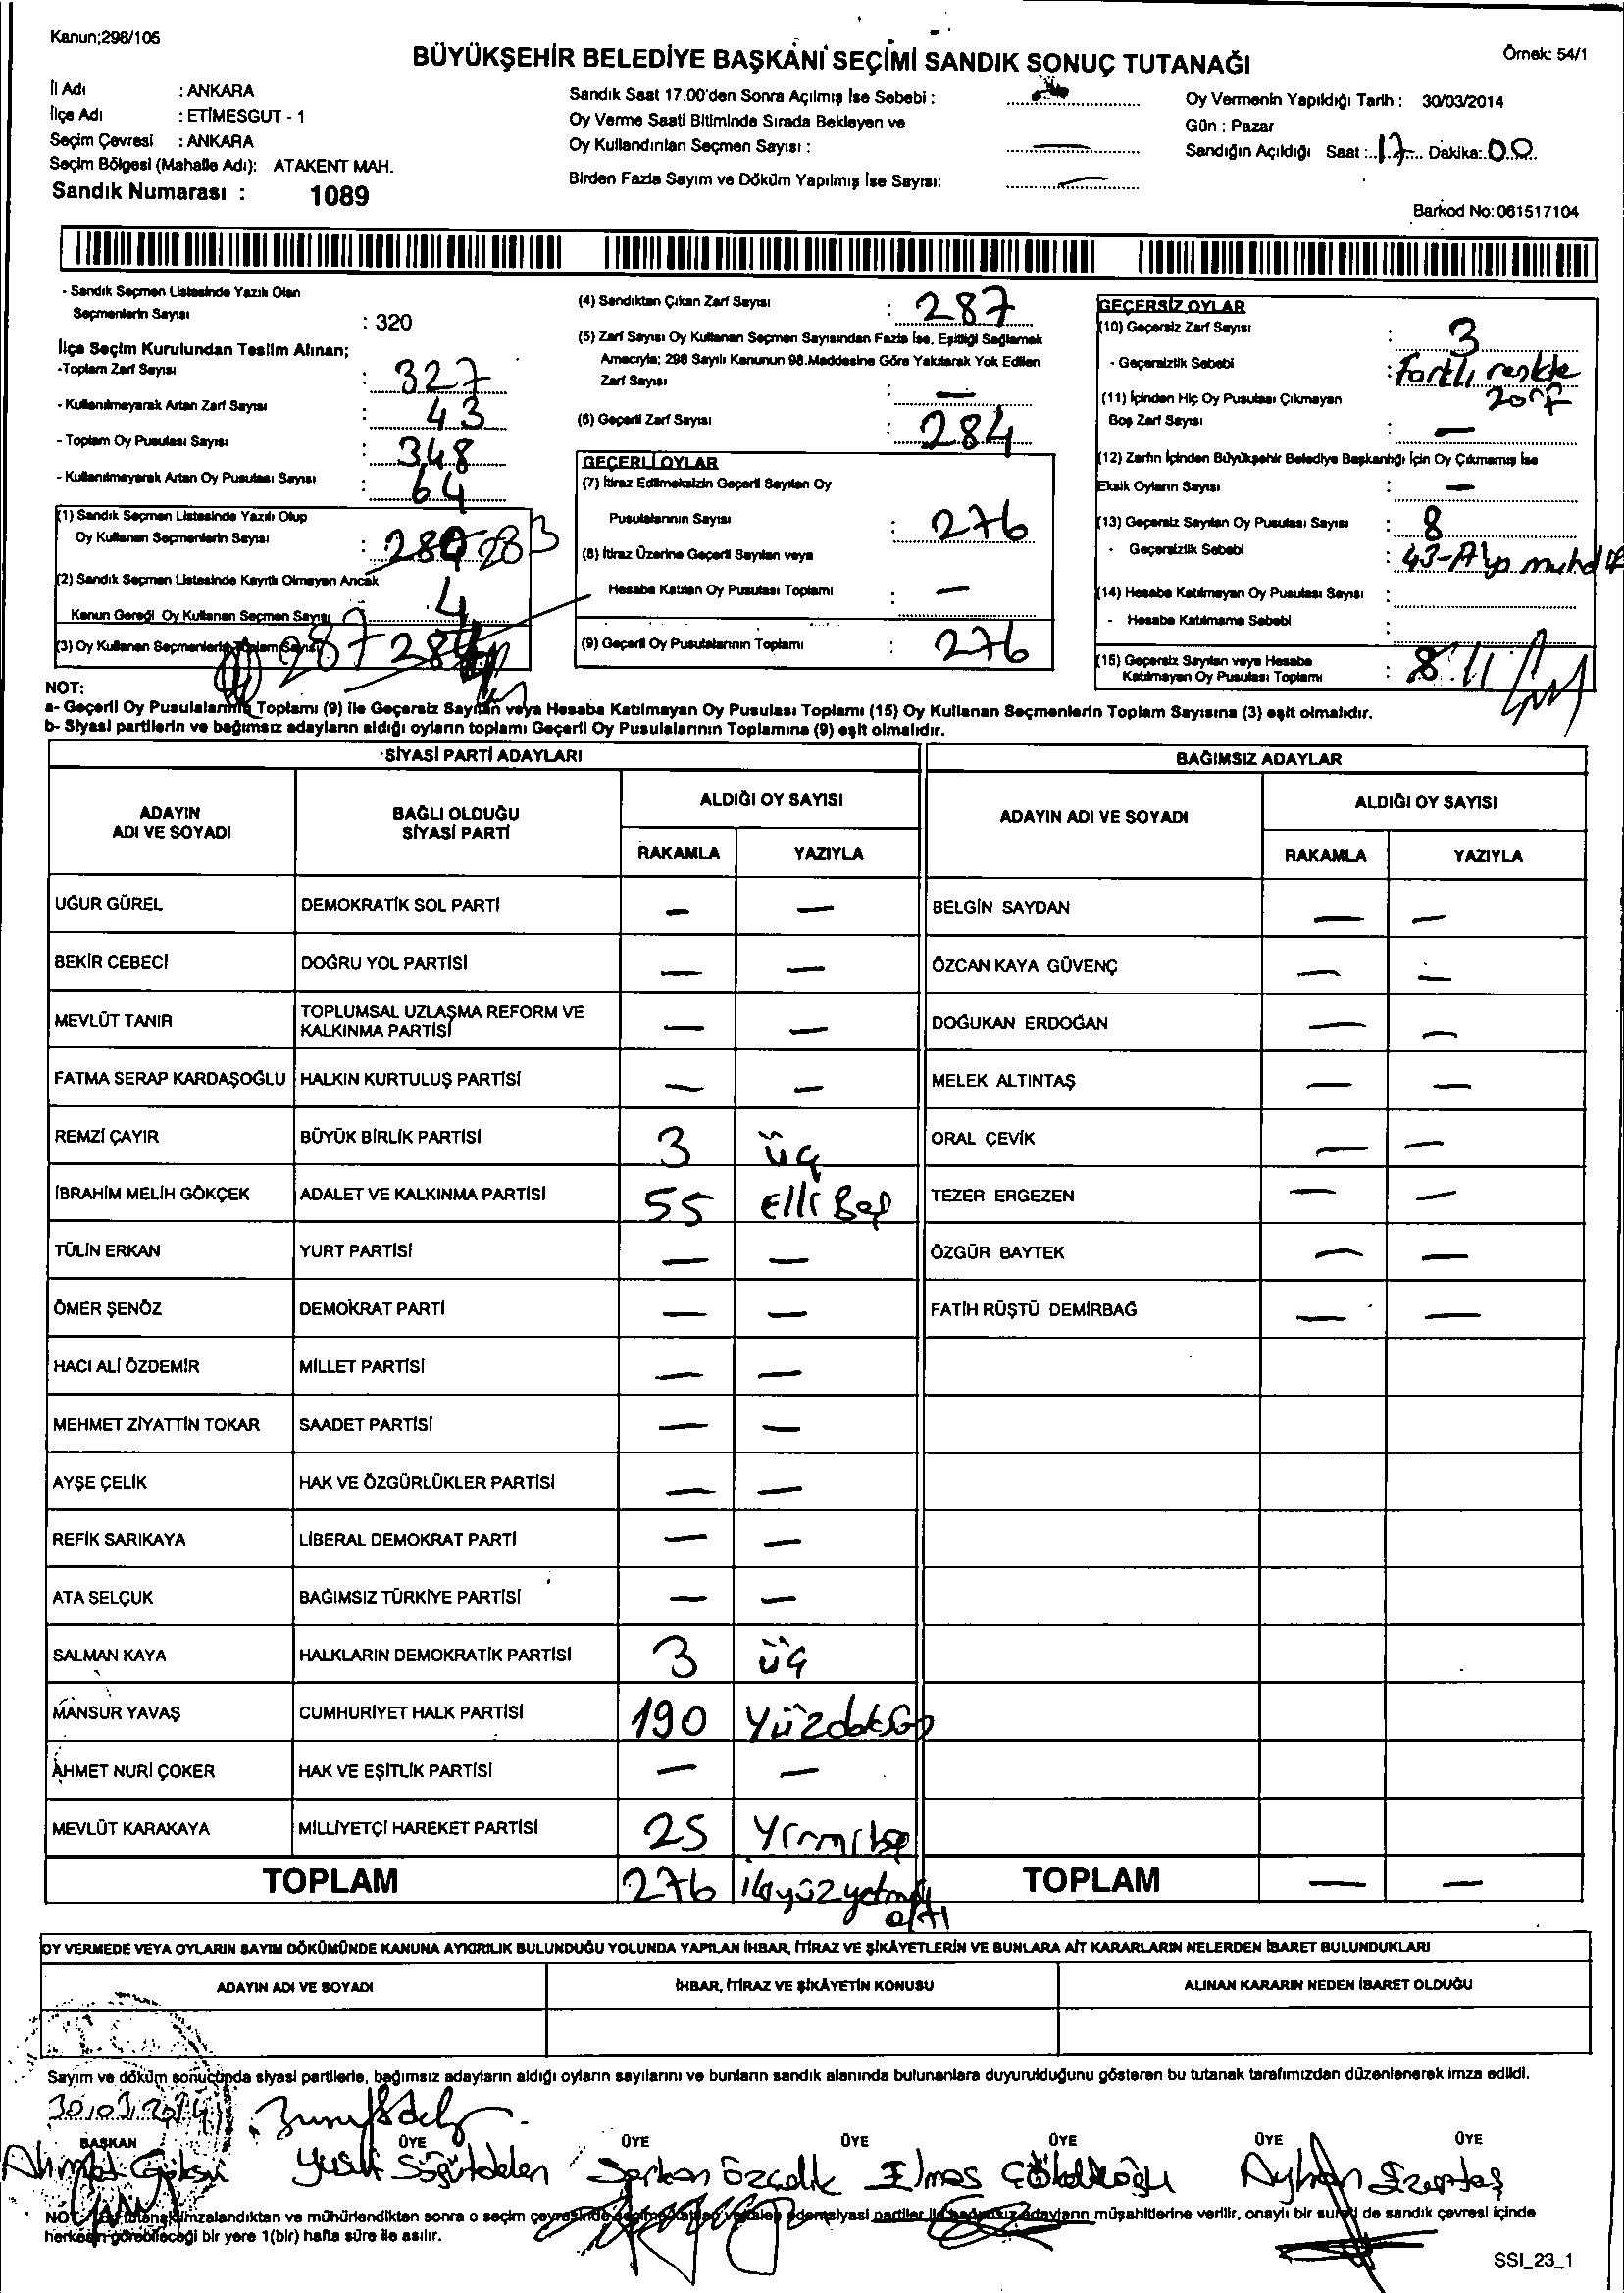 Kanun;298/105
BÜYÜKŞEHİR BELEDİYE BAŞKANI SEÇİMİ SANDIK SONUÇ TUTANAĞI
Örnek: 54/1
İl Adı : ANKARA
İlçe Adı : ETİMESGUT - 1
Seçim Çevresi : ANKARA
Seçim Bölgesi (Mahalle Adı): ATAKENT MAH.
Sandık Numarası : 1089
Sandık Saat 17.00'den Sonra Açılmış İse Sebebi :
Oy Verme Saati Bitiminde Sırada Bekleyen ve
Oy Kullandırılan Seçmen Sayısı : —
Birden Fazla Sayım ve Döküm Yapılmış İse Sayısı: —
Oy Vermenin Yapıldığı Tarih : 30/03/2014
Gün : Pazar
Sandığın Açıldığı Saat : 17 Dakika: 00
Barkod No: 061517104
- Sandık Seçmen Listesinde Yazılı Olan
Seçmenlerin Sayısı : 320
İlçe Seçim Kurulundan Teslim Alınan;
-Toplam Zarf Sayısı : 327
- Kullanılmayarak Artan Zarf Sayısı : 43
- Toplam Oy Pusulası Sayısı : 348
- Kullanılmayarak Artan Oy Pusulası Sayısı : 64
(1) Sandık Seçmen Listesinde Yazılı Olup
Oy Kullanan Seçmenlerin Sayısı : 280 283
(2) Sandık Seçmen Listesinde Kayıtlı Olmayan Ancak
Kanun Gereği Oy Kullanan Seçmen Sayısı : 4
(3) Oy Kullanan Seçmenlerin Toplam Sayısı 287 284
(4) Sandıktan Çıkan Zarf Sayısı : 287
(5) Zarf Sayısı Oy Kullanan Seçmen Sayısından Fazla İse, Eşitliği Sağlamak
Amacıyla; 298 Sayılı Kanunun 98.Maddesine Göre Yakılarak Yok Edilen
Zarf Sayısı : —
(6) Geçerli Zarf Sayısı : 284
GEÇERLİ OYLAR
(7) İtiraz Edilmeksizin Geçerli Sayılan Oy
Pusulalarının Sayısı : 276
(8) İtiraz Üzerine Geçerli Sayılan veya
Hesaba Katılan Oy Pusulası Toplamı : —
(9) Geçerli Oy Pusulalarının Toplamı : 276
GEÇERSİZ OYLAR
(10) Geçersiz Zarf Sayısı : 3
- Geçersizlik Sebebi : Farklı renkte
zarf
(11) İçinden Hiç Oy Pusulası Çıkmayan
Boş Zarf Sayısı : —
(12) Zarfın İçinden Büyükşehir Belediye Başkanlığı İçin Oy Çıkmamış İse
Eksik Oyların Sayısı : —
(13) Geçersiz Sayılan Oy Pusulası Sayısı : 8
- Geçersizlik Sebebi :
(14) Hesaba Katılmayan Oy Pusulası Sayısı :
- Hesaba Katılmama Sebebi :
(15) Geçersiz Sayılan veya Hesaba
Katılmayan Oy Pusulası Toplamı : 8 11
NOT:
a- Geçerli Oy Pusulalarının Toplamı (9) ile Geçersiz Sayılan veya Hesaba Katılmayan Oy Pusulası Toplamı (15) Oy Kullanan Seçmenlerin Toplam Sayısına (3) eşit olmalıdır.
b- Siyasi partilerin ve bağımsız adayların aldığı oyların toplamı Geçerli Oy Pusulalarının Toplamına (9) eşit olmalıdır.
SİYASİ PARTİ ADAYLARI
BAĞIMSIZ ADAYLAR
ADAYIN ADI VE SOYADI
BAĞLI OLDUĞU SİYASİ PARTİ
ALDIĞI OY SAYISI
RAKAMLA YAZIYLA
ADAYIN ADI VE SOYADI
ALDIĞI OY SAYISI
RAKAMLA YAZIYLA
UĞUR GÜREL DEMOKRATİK SOL PARTİ — — BELGİN SAYDAN — —
BEKİR CEBECİ DOĞRU YOL PARTİSİ — — ÖZCAN KAYA GÜVENÇ — —
MEVLÜT TANIR TOPLUMSAL UZLAŞMA REFORM VE KALKINMA PARTİSİ — — DOĞUKAN ERDOĞAN — —
FATMA SERAP KARDAŞOĞLU HALKIN KURTULUŞ PARTİSİ — — MELEK ALTINTAŞ — —
REMZİ ÇAYIR BÜYÜK BİRLİK PARTİSİ 3 üç ORAL ÇEVİK — —
İBRAHİM MELİH GÖKÇEK ADALET VE KALKINMA PARTİSİ 55 Elli Beş TEZER ERGEZEN — —
TÜLİN ERKAN YURT PARTİSİ — — ÖZGÜR BAYTEK — —
ÖMER ŞENÖZ DEMOKRAT PARTİ — — FATİH RÜŞTÜ DEMİRBAĞ — —
HACI ALİ ÖZDEMİR MİLLET PARTİSİ — —
MEHMET ZİYATTİN TOKAR SAADET PARTİSİ — —
AYŞE ÇELİK HAK VE ÖZGÜRLÜKLER PARTİSİ — —
REFİK SARIKAYA LİBERAL DEMOKRAT PARTİ — —
ATA SELÇUK BAĞIMSIZ TÜRKİYE PARTİSİ — —
SALMAN KAYA HALKLARIN DEMOKRATİK PARTİSİ 3 üç
MANSUR YAVAŞ CUMHURİYET HALK PARTİSİ 190 Yüzdoksan
AHMET NURİ ÇOKER HAK VE EŞİTLİK PARTİSİ — —
MEVLÜT KARAKAYA MİLLİYETÇİ HAREKET PARTİSİ 25 Yirmibeş
TOPLAM 276 ikiyüzyetmiş altı TOPLAM — —
OY VERMEDE VEYA OYLARIN SAYIM DÖKÜMÜNDE KANUNA AYKIRILIK BULUNDUĞU YOLUNDA YAPILAN İHBAR, İTİRAZ VE ŞİKÂYETLERİN VE BUNLARA AİT KARARLARIN NELERDEN İBARET BULUNDUKLARI
ADAYIN ADI VE SOYADI İHBAR, İTİRAZ VE ŞİKÂYETİN KONUSU ALINAN KARARIN NEDEN İBARET OLDUĞU
Sayım ve döküm sonucunda siyasi partilerle, bağımsız adayların aldığı oyların sayılarını ve bunların sandık alanında bulunanlara duyurulduğunu gösteren bu tutanak tarafımızdan düzenlenerek imza edildi.
30/03/2014
BAŞKAN ÜYE ÜYE ÜYE ÜYE ÜYE ÜYE
Ahmet Göksu Yusuf Söğütdelen Serkan Özçelik Elmas Ayhan
NOT: Bu tutanak imzalandıktan ve mühürlendikten sonra o seçim çevresinde seçime katılan siyasi partiler ile bağımsız adayların müşahitlerine verilir, onaylı bir sureti de sandık çevresi içinde
herkesin görebileceği bir yere 1(bir) hafta süre ile asılır.
SSI_23_1